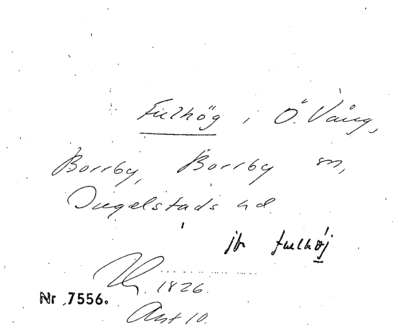 Fulhög i Ö. Vång,
Borrby, Borrby sn,
Ingelstads hd.
jfr fulhöj
1826.
Nr 7556.
Akt 10.